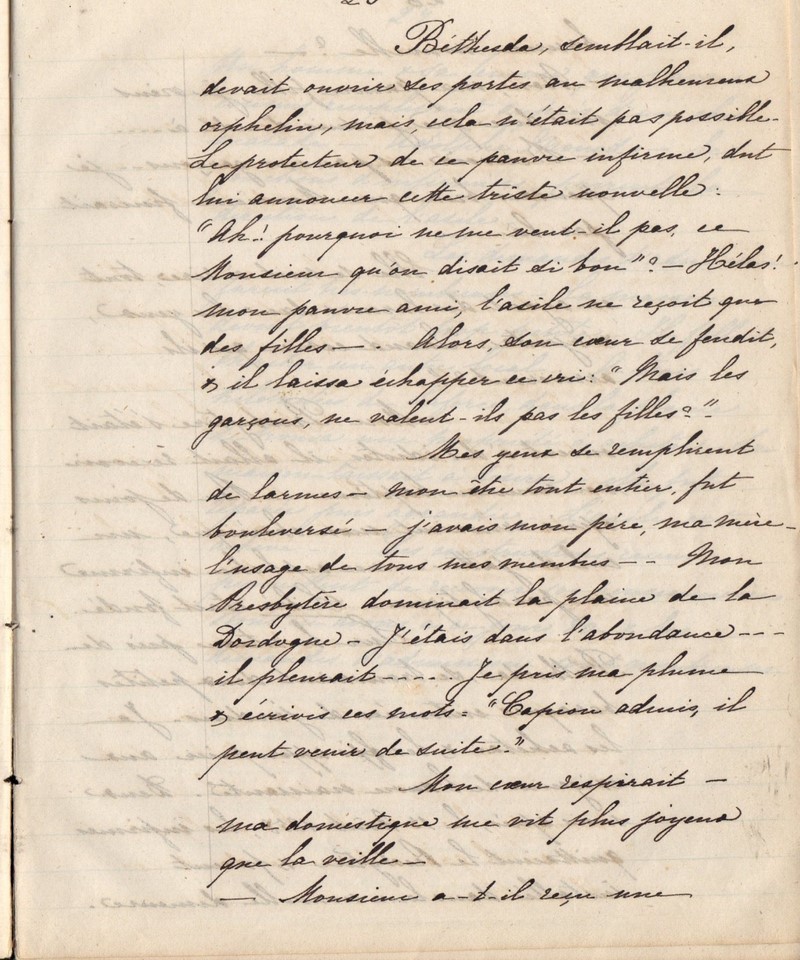 Béthesda, semblait-il,
devait ouvrir ses portes au malheureux
orphelin, mais, cela n'était pas possible-
Le protecteur de ce pauvre infirme, dut
lui annoncer cette triste nouvelle :
"Ah! pourquoi ne me veut-il pas, ce
Monsieur qu'on disait si bon"? - Hélas!
mon pauvre ami, l'asile ne reçoit que
des filles - . Alors, son cœur se fendit,
& il laissa échapper ce cri: "Mais les
garçons, ne valent-ils pas les filles?".
Mes yeux se remplirent
de larmes - mon être tout entier, fut
bouleversé - j'avais mon père, ma mère -
l'usage de tous mes membres - - Mon
Presbytère dominait la plaine de la
Dordogne - J'étais dans l'abondance - - -
il pleurait - - - - . Je pris ma plume
& écrivis ces mots = "Capion admis, il
peut venir de suite."
Mon cœur respirait -
ma domestique me vit plus joyeux
que la veille -
- Monsieur a-t-il reçu une